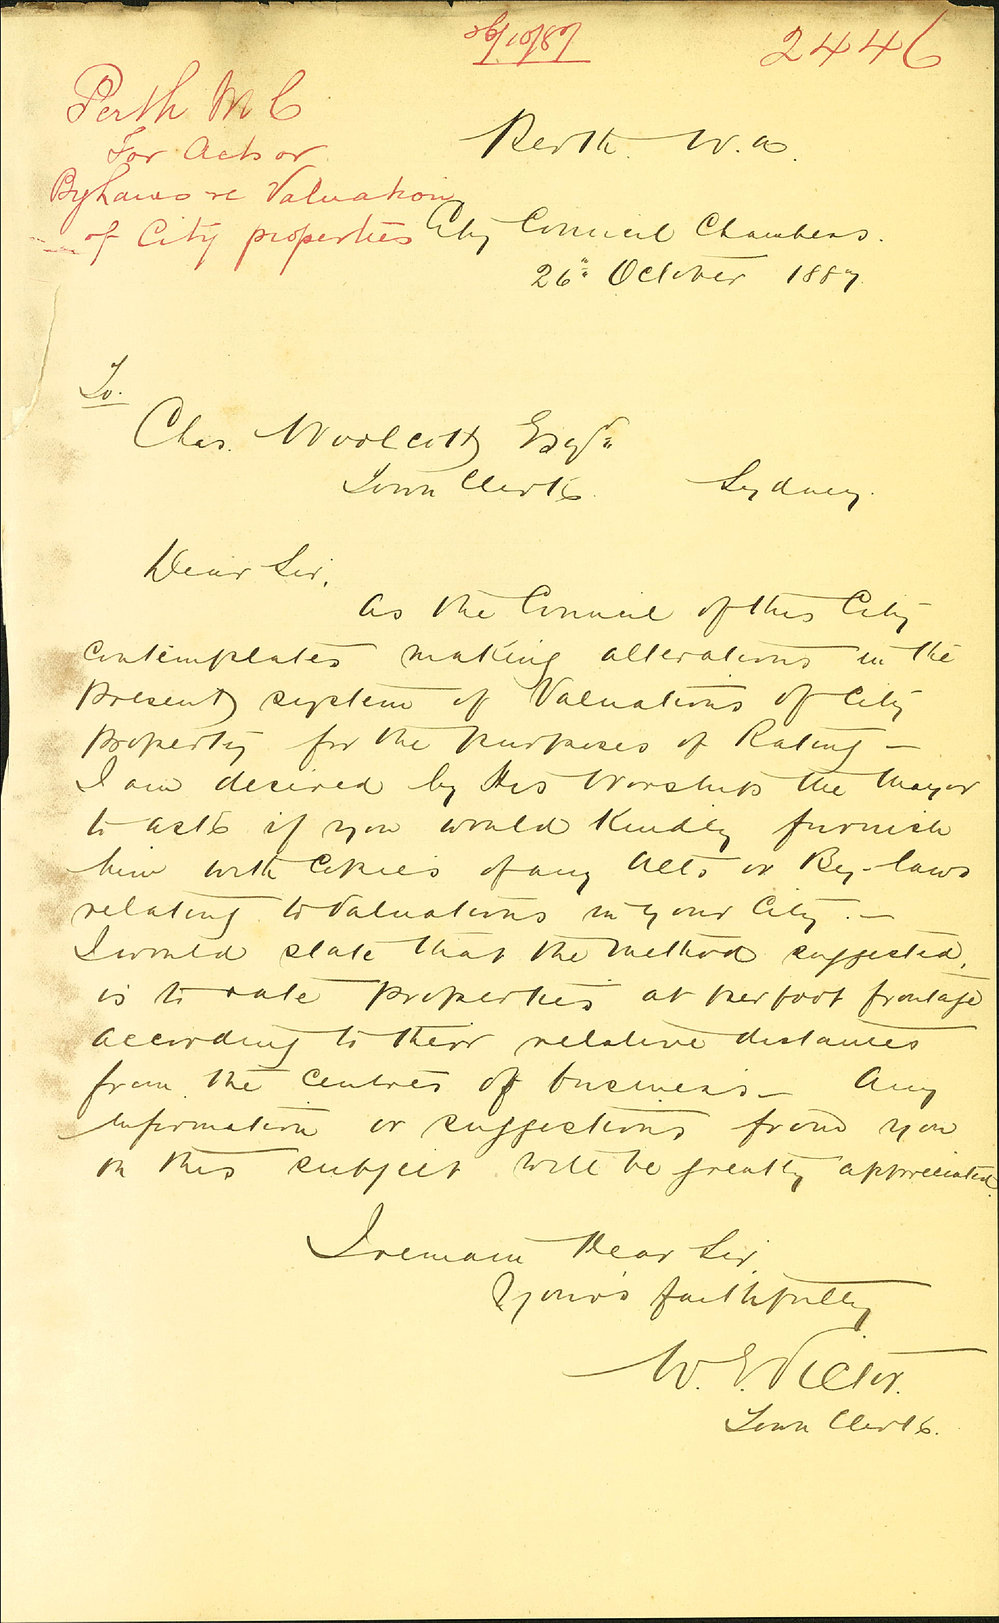 26/10/87
2446
Perth M C
For Acts or
Byelaws re Valuation
of City properties
Perth. W.A.
City Council Chambers.
26" October 1887
To.
Chas. Woolcott Esqre
Town Clerk. Sydney.
Dear Sir,
As the Council of this City
contemplates making alterations in the
present system of Valuations of City
property for the purposes of Rating –
I am desired by His Worship the Mayor
to ask if you would kindly furnish
him with Copies of any Acts or By-laws
relating to Valuations in your City. –
I would state that the method suggested,
is to rate properties at per foot frontage
according to their relative distances
from the centres of business – Any
information or suggestions from you
on this subject will be greatly appreciated.
I remain Dear Sir,
Your's faithfully
W. E. Victor.
Town Clerk.